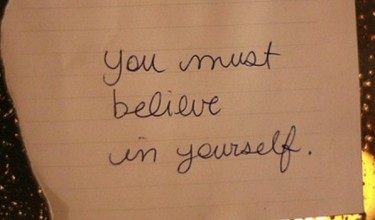 you must
believe
in yourself.